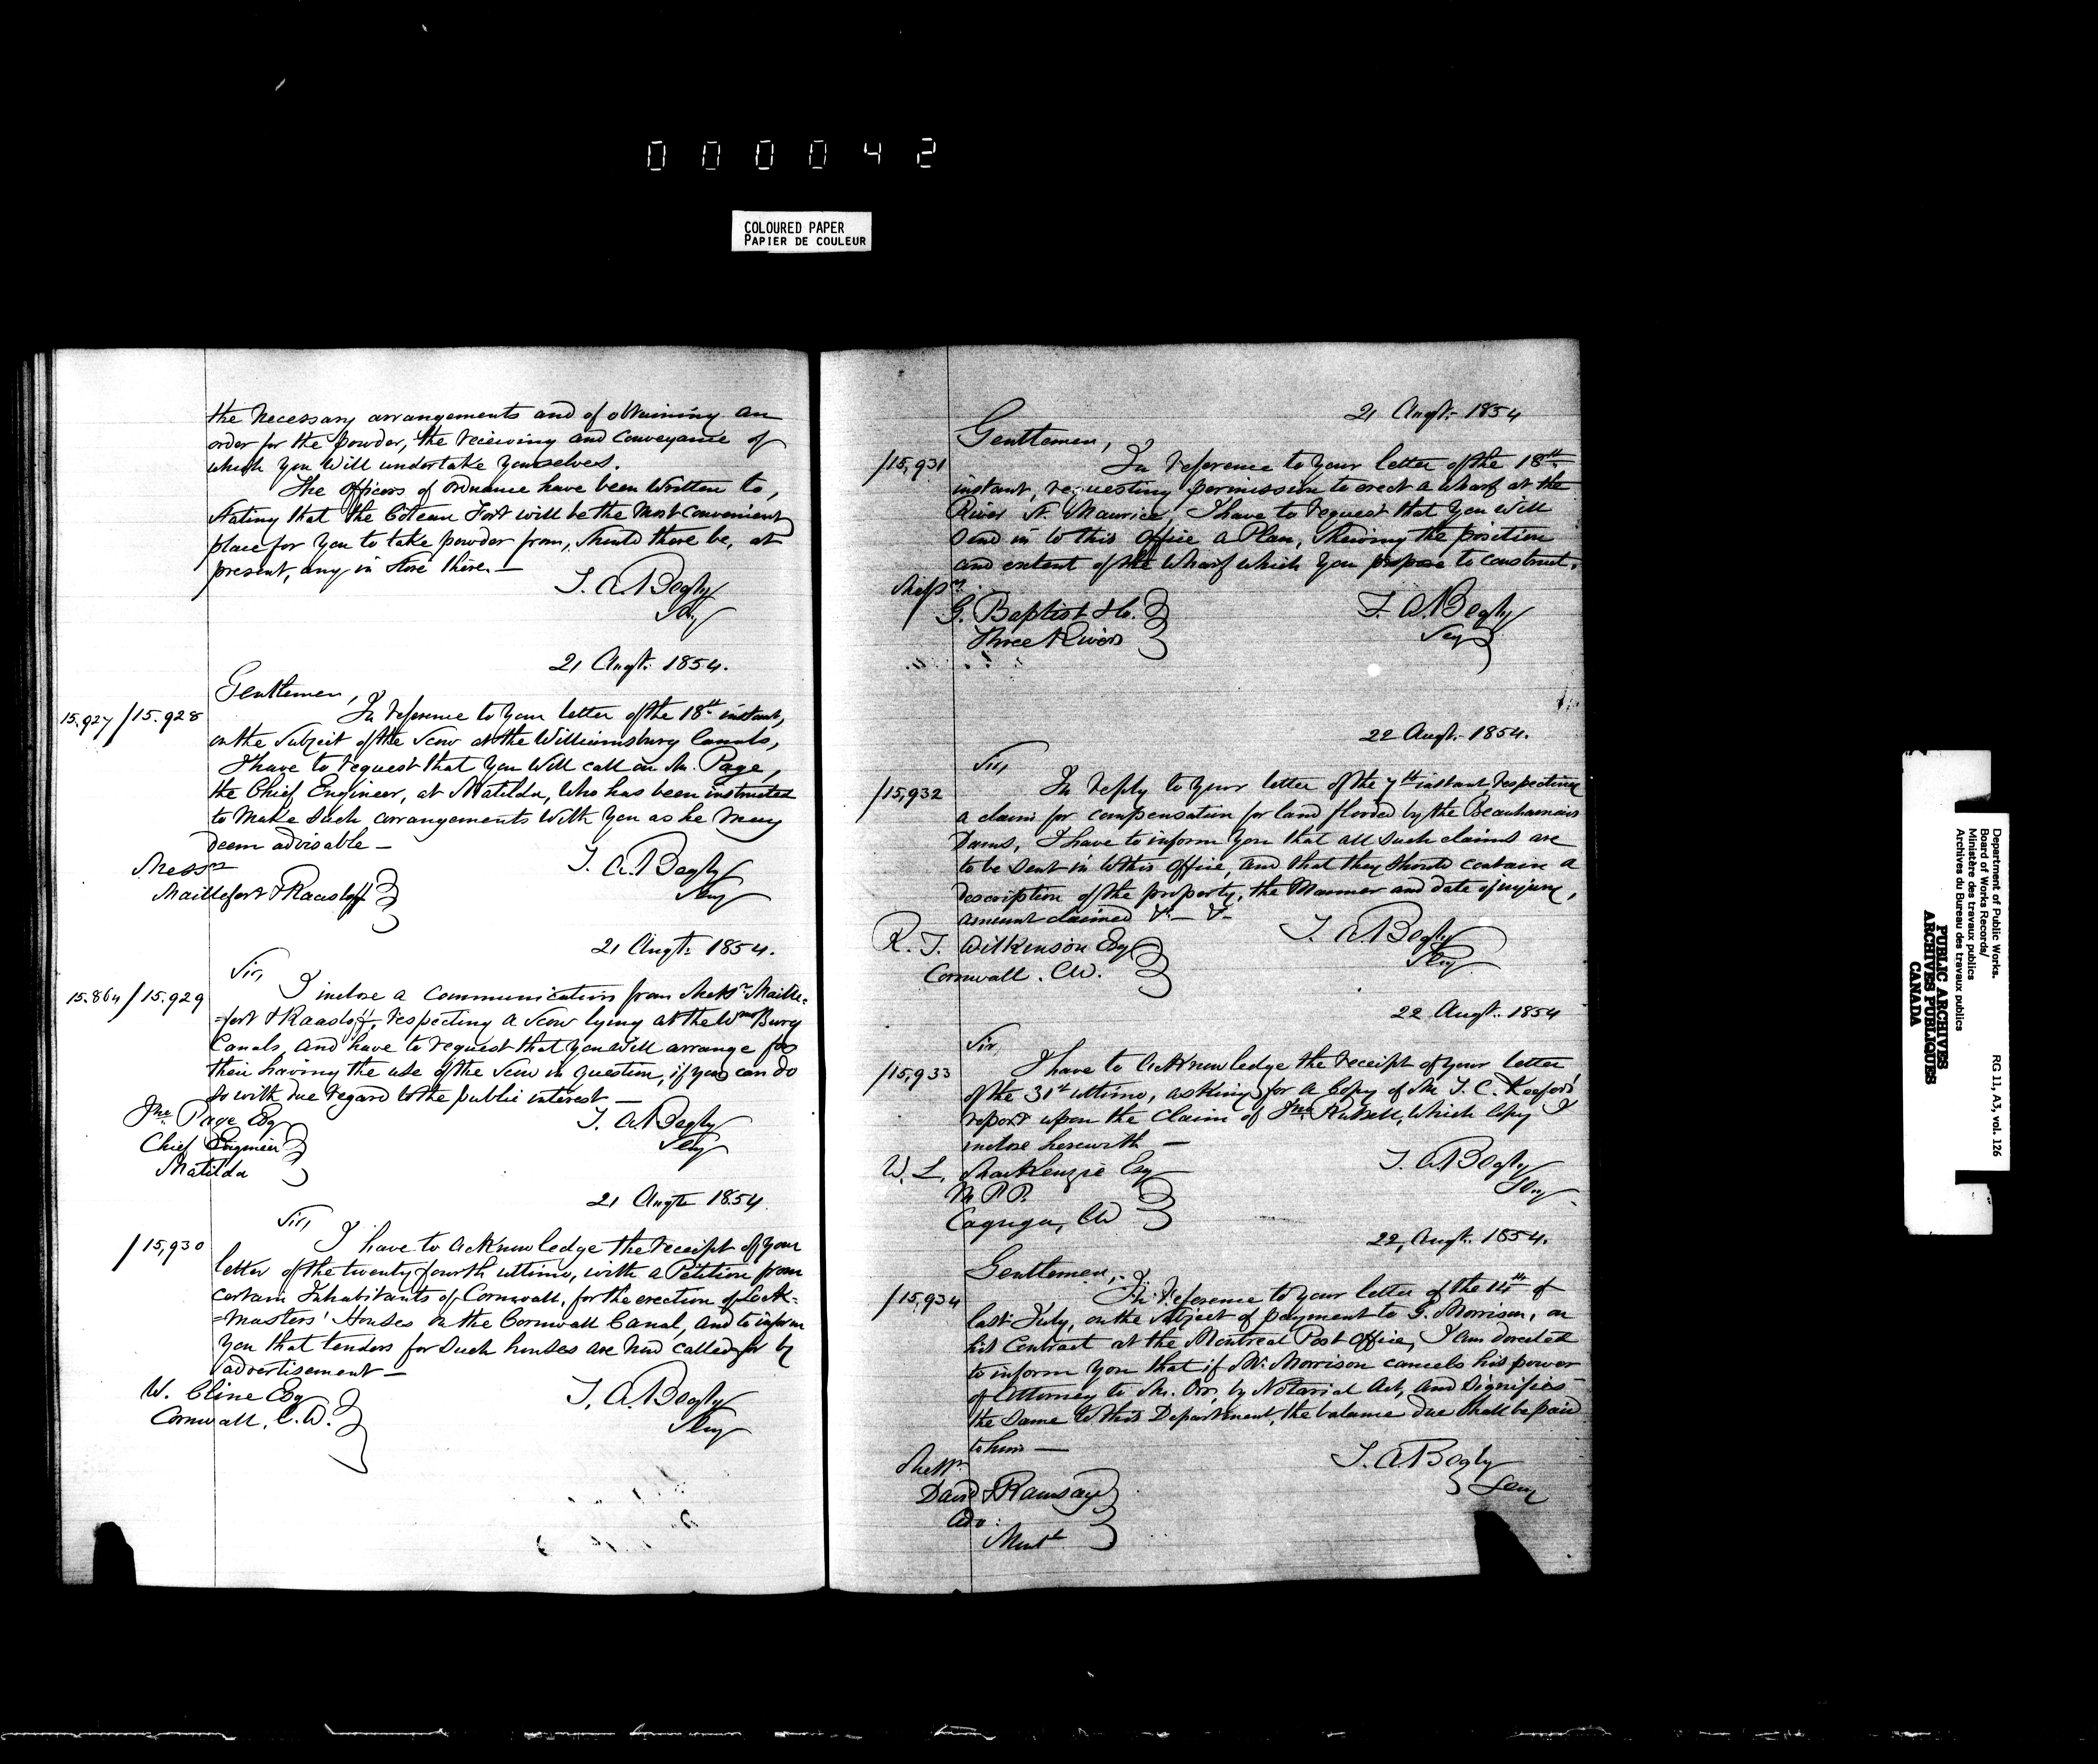 000042
COLOURED PAPER
PAPIER DE COULEUR
the necessary arrangements and of obtaining an
order for the powder, the receiving and conveyance of
which you will undertake yourselves.
The officers of ordnance have been written to,
stating that the Coteau Fort will be the most convenient
place for you to take powder from, should there be, at
present, any in store there. —
T. A. Begly
Secy
21 Augt. 1854.
Gentlemen,
15.927 / 15.928
In reference to your letter of the 18th instant,
on the subject of the scow at the Williamsburg Canals,
I have to request that you will call on Mr. Page,
the Chief Engineer, at Matilda, who has been instructed
to make such arrangements with you as he may
deem advisable —
T. A. Begly
Secy
Messrs
Maillefert & Raasloff
21 Augt. 1854.
Sir,
15.864 / 15.929
I inclose a communication from Messrs Maille-
=fert & Raasloff, respecting a scow lying at the Wmsburg
Canals, and have to request that you will arrange for
their having the use of the scow in question, if you can do
so with due regard to the public interest —
T. A. Begly
Secy
Jno. Page Esq
Chief Engineer
Matilda
21 Augt 1854.
Sir,
/ 15,930
I have to acknowledge the receipt of your
letter of the twenty fourth ultimo, with a Petition from
certain Inhabitants of Cornwall, for the erection of Lock=
=masters' Houses on the Cornwall Canal, and to inform
you that tenders for such houses are now called for by
advertisement —
W. Cline Esq
Cornwall, C.W.
T. A. Begly
Secy
21 Augt. 1854
Gentlemen,
/15,931
In reference to your letter of the 18th
instant, requesting permission to erect a wharf at the
River St. Maurice, I have to request that you will
send in to this office a Plan, shewing the position
and extent of the wharf which you propose to construct.
Messrs
G. Baptist & Co.
Three Rivers
T. A. Begly
Secy
22 Augt. 1854.
Sir,
/15,932
In reply to your letter of the 7th instant, respecting
a claim for compensation for land flooded by the Beauharnois
Dams, I have to inform you that all such claims are
to be sent in to this office, and that they should contain a
description of the property, the manner and date of injury,
amount claimed &c— &c—
T. A. Begly
Secy
R. T. Wilkinson Esq
Cornwall. CW.
22 Augt. 1854
Sir,
/15,933
I have to acknowledge the receipt of your letter
of the 31st ultimo, asking for a copy of Mr T. C. Keefer's
report upon the claim of Jno. Russell, which copy I
inclose herewith —
T. A. Begly
Secy
W. L. MacKenzie Esq
M.P.P.
Cayuga, CW
22, Augt. 1854.
Gentlemen,
/15,934
In reference to your letter of the 14th of
last July, on the subject of payment to G. Morrison, on
his contract at the Montreal Post Office, I am directed
to inform you that if Mr. Morrison cancels his power
of Attorney to Mr. Orr, by Notarial Act, and signifies
the same to this Department, the balance due shall be paid
to him —
T. A. Begly
Secy
Messrs
David & Ramsay
Adv:
Montl
Department of Public Works.
Board of Works Records/
Ministère des travaux publics
Archives du Bureau des travaux publics
RG 11, A3, vol. 126
PUBLIC ARCHIVES
ARCHIVES PUBLIQUES
CANADA